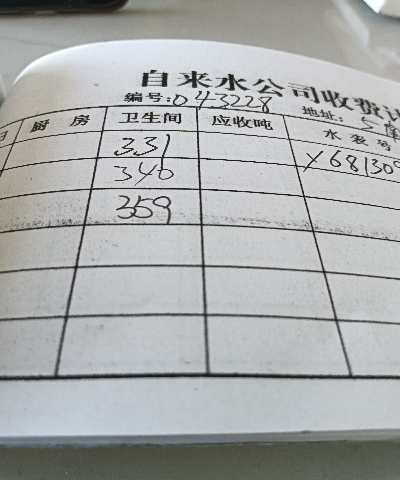 自来水公司收费
编号:043228 地址:5
厨房 卫生间 应收吨 水表号
331 Y681309
340
359